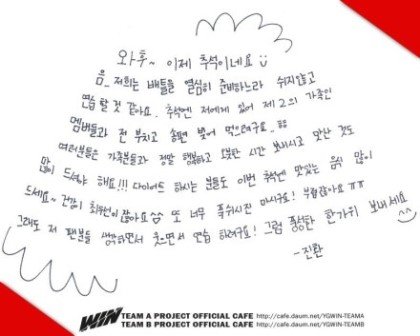 와후~ 이제 추석이네요
음.. 저희는 배틀을 열심히 준비하느라 쉬지않고
연습 할 것 같아요. 추석엔 저에게 있어 제 2의 가족인
멤버들과 전 부치고 송편 빚어 먹으려구요..ㅎㅎ
여러분들은 가족분들과 정말 행복하고 오붓한 시간 보내시고 맛난 것도
많이 드셔야 해요!!! 다이어트 하시는 분들도 이번 추석엔 맛있는 음식 많이
드세요~ 건강이 최우선이잖아요 또 너무 푹쉬시진 마시구요! 부럽잖아요 ㅠㅠ
그래도 저 팬분들 생각하면서 웃으면서 연습 하려구요! 그럼 풍성한 한가위 보내세요
-진환
WIN TEAM A PROJECT OFFICIAL CAFE http://cafe.daum.net/YGWIN-TEAMA
TEAM B PROJECT OFFICIAL CAFE http://cafe.daum.net/YGWIN-TEAMB